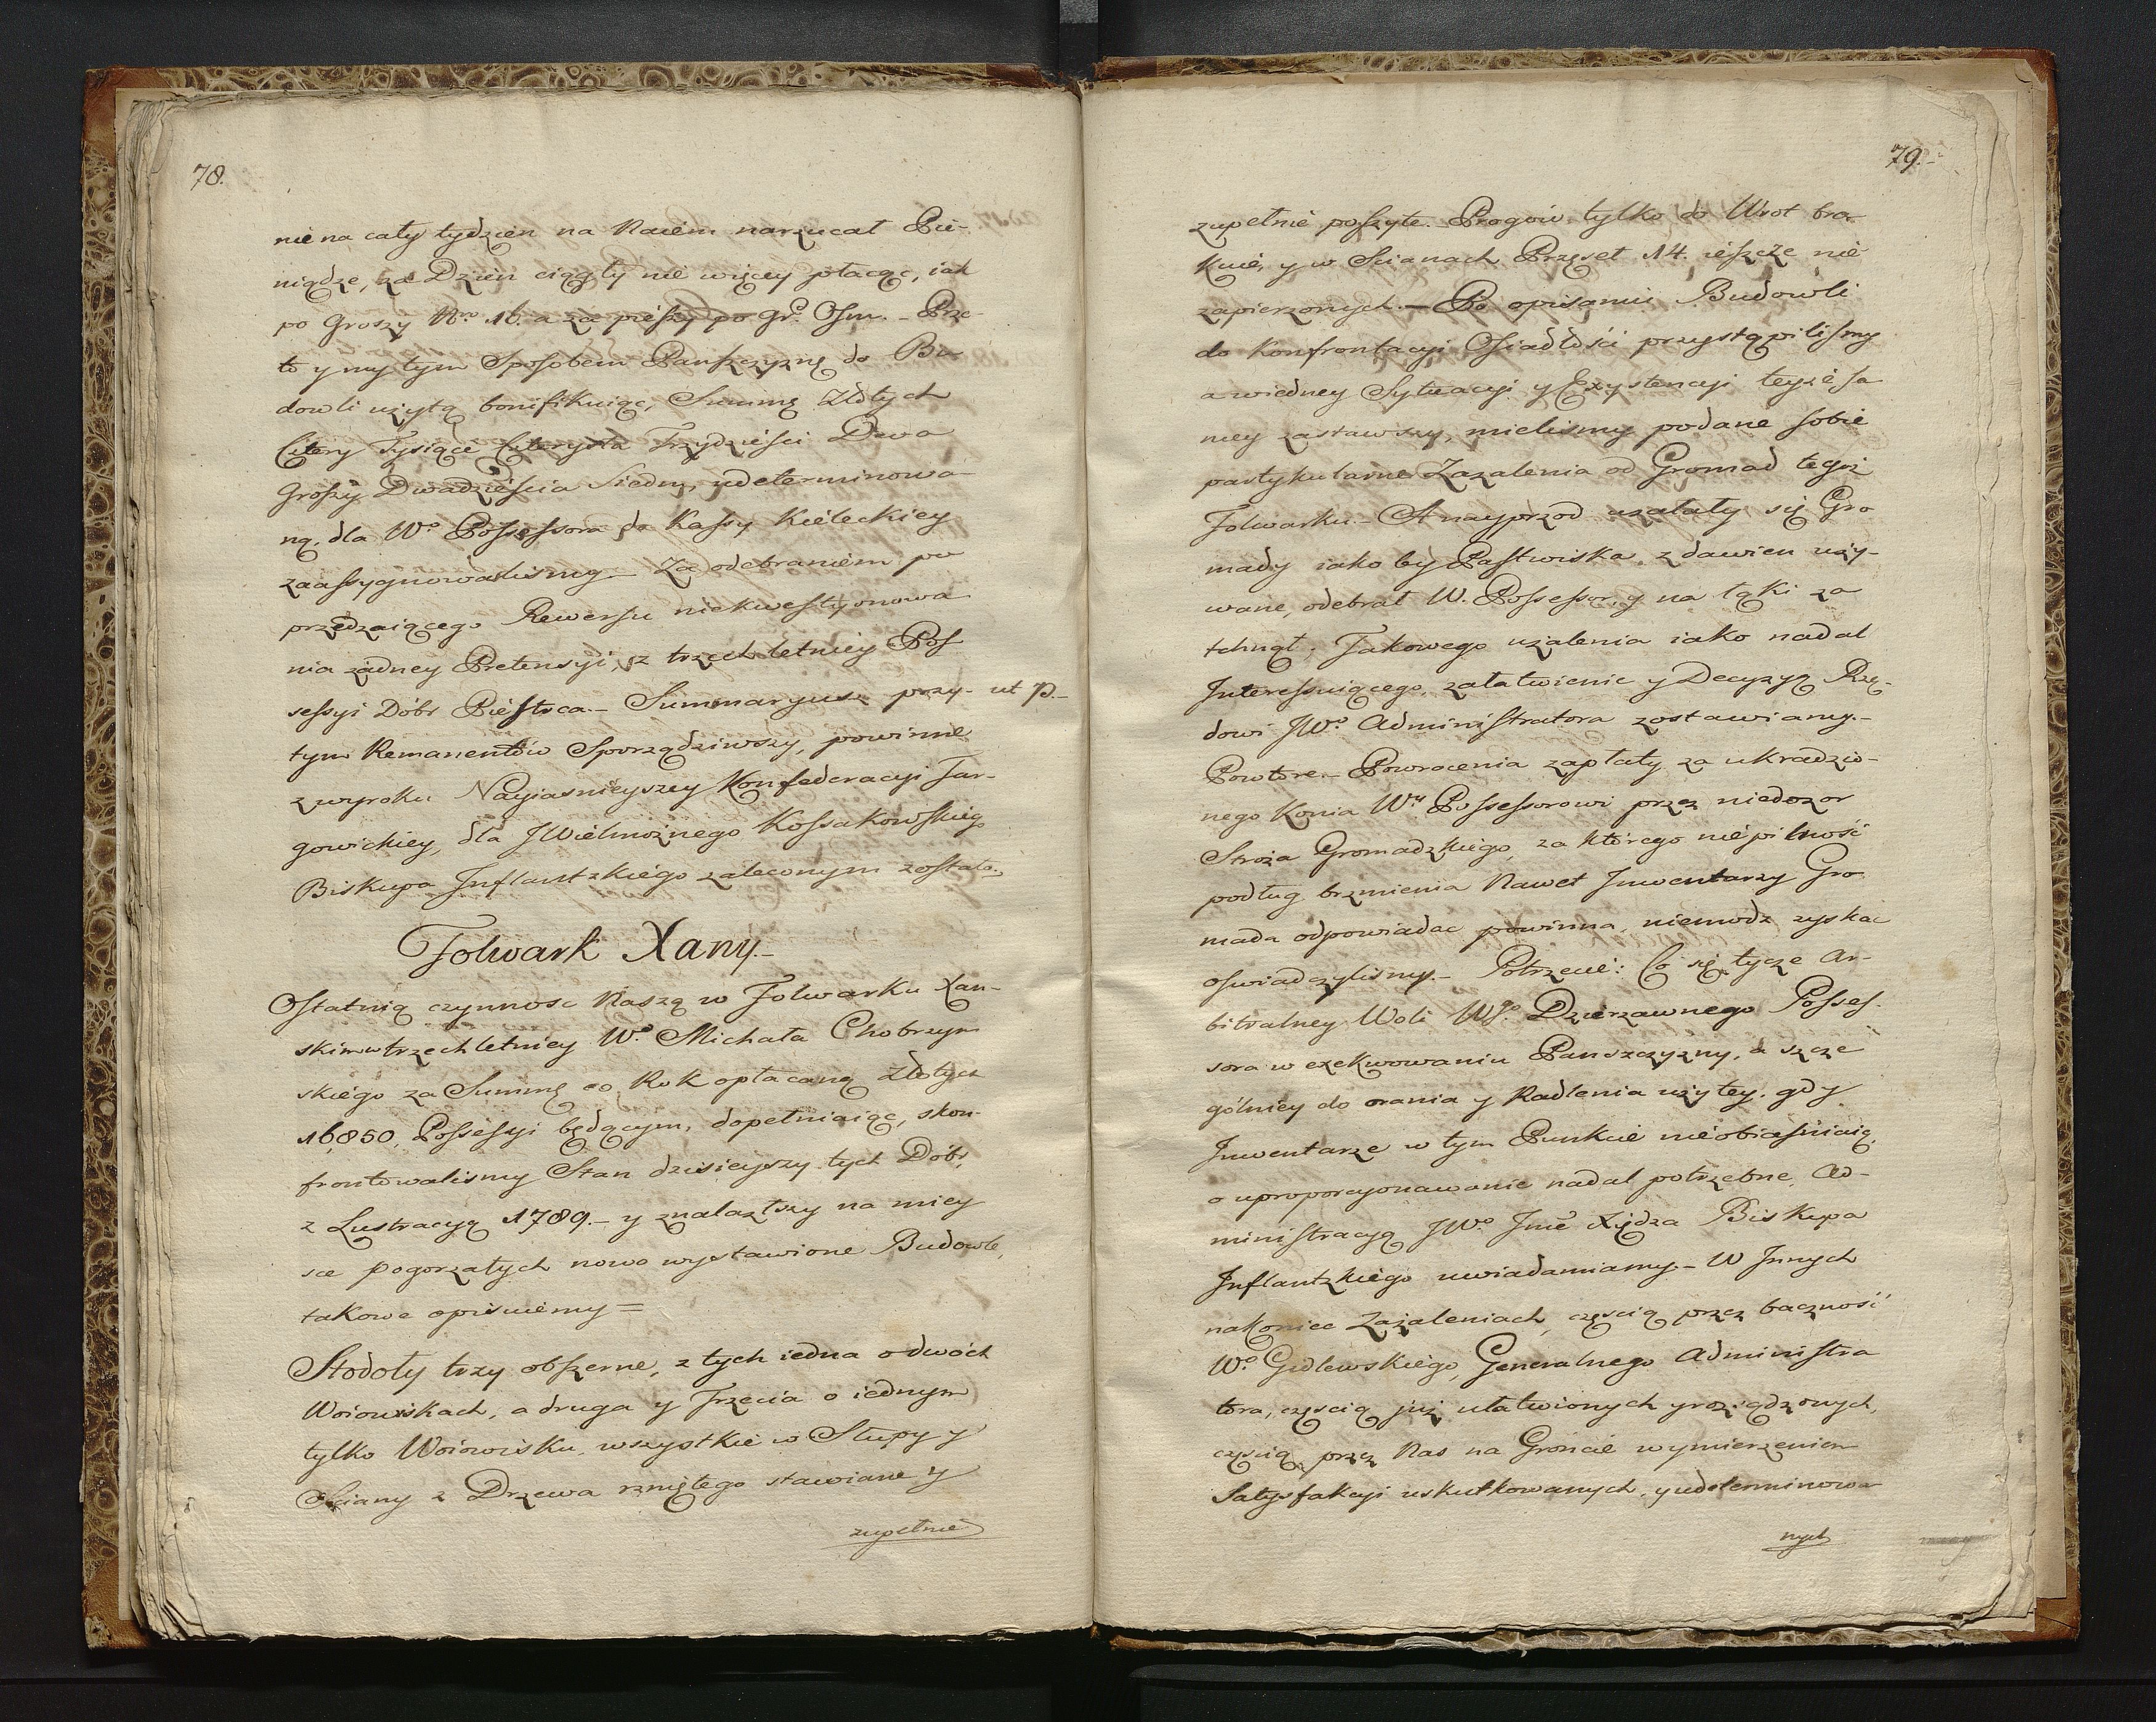 78.
nie na cały tydzien na Naiem narzucał Pie-
niądze, za Dzien ciągły nie więcey płacąc, iak
po Groszy Nro 16. a za pieszy po gr. Osm. - Prze-
to y my tym Sposobem Panszczyznę do Bu-
dowli użytą bonifikuiąc, Summę Złotych
Cztery Tysiące Czterysta Trzydzieści Dwa
Groszy Dwadzieścia Siedm, udeterminowa-
ną, dla Wo Possessora do Kassy Kieleckiey
zaassygnowalismy - Za odebraniem po
przedzaiącego Rewersu niekwestyonowa
nia żadney Pretensyi, z trzechletniey Pos
sessyi Dóbr Piestrca. - Summaryusz przy- ut p. -
tym Remanentów Sporządziwszy, powinne
z wyroku Nayiasnieyszey Konfederacyi Tar-
gowickiey, dla JWielmożnego Kossakowskiego
Biskupa Inflantzkiego zaleconym zostało.
Folwark Xany. -
Ostatnią czynnosc Naszą w Folwarku Xan-
skim w trzechletniey Wo Michała Chobrzyn
skiego za Summę co Rok opłacaną Złotych
16,850, Possesyi będącym, dopełniaiąc, skon-
frontowalismy Stan dzisieyszy tych Dóbr,
z Lustracyą 1789. - y znalaztszy na miey
sce pogorzałych nowo wystawione Budowle,
takowe opisuiemy =
Stodoły trzy obszerne, z tych iedna o dwóch
Woiowiskach, a druga y Trzecia o iednym
tylko Woiowisku, wszystkie w Słupy y
Sciany z Drzewa rzniętego stawiane y
zupełnie
79. -
zupełnie poszyte. - Progów tylko do Wrot bra-
kuie, y w Scianach Przęseł 14. ieszcze nie
zapierzonych. - Po opisaniu Budowli
do Konfrontacyi Osiadłości przystąpilismy
a wiedney Sytuacyi y Exystencyi teyże sa
mey zastawszy, mielismy podane sobie
partykularne Zażalenia od Gromad tegoż
Folwarku. - A nayprzod użalały się Gro
mady iakoby Pastwiska z dawien uży-
wane, odebrał W. Possessor, y na łąki za
tchnął. Takowego użalenia iako nadal
Interessuiącego, załatwienie y Decyzyą Rzą-
dowi JWo Administratora zostawiamy. -
Powtóre. - Powrocenia zapłaty za ukradzio-
nego Konia Wu Possessorowi przez niedozor
Stroża Gromadzkiego, za którego niepilność
podług brzmienia Nawet Inwentarzy Gro
mada odpowiadac powinna, niemodz zyskac
oswiadczylismy. - Potrzecie: Co się tycze Ar-
bitralney Woli Wgo Dzierzawnego Posses-
sora w exekwowaniu Panszczyzny, a szcze
gólniey do orania y Radlenia użytey, gdy
Inwentarze w tym Punkcie nieobiaśniaią,
o uproporcyonowanie nadal potrzebne, Ad-
ministracyą JWo Jmć Xiędza Biskupa
Inflantzkiego uwiadamiamy - W Innych
nakoniec Zażaleniach, częścią przez baczność
Wo Gidlewskiego, Generalnego Administra
tora, częscią już ułatwionych y rozsądzonych,
częscią przez Nas na Gróncie wymierzeniem
Satysfakcyi uskutkowanych, y udeterminowa
nych